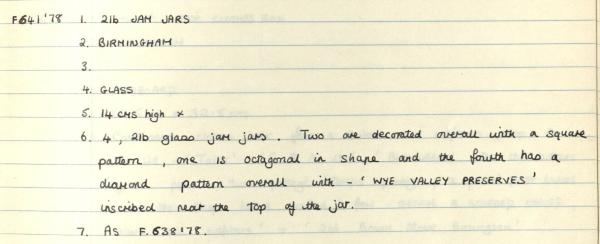 F641'78 1. 2lb JAM JARS
2. BIRMINGHAM
3.
4. GLASS
5. 14 cms high x
6. 4, 2lb glass jam jars. Two are decorated overall with a square
pattern, one is octagonal in shape and the fourth has a
diamond pattern overall with - 'WYE VALLEY PRESERVES'
inscribed near the top of the jar.
7. As F.638'78.